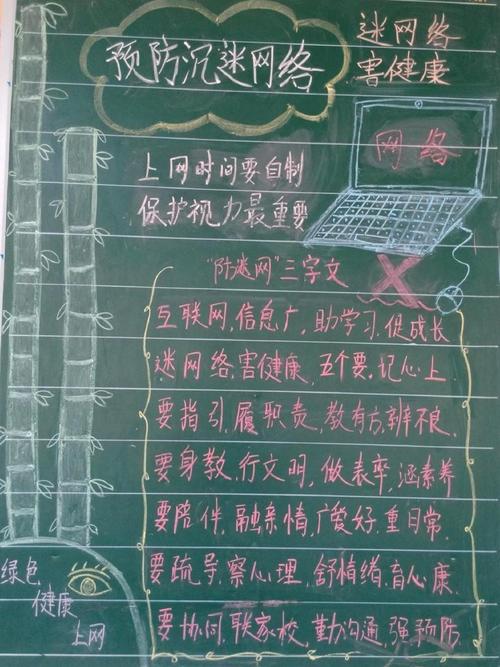 预防沉迷网络
迷网络
害健康
网络
上网时间要自制
保护视力最重要
“防迷网”三字文
互联网,信息广,助学习,促成长
迷网络,害健康,五个要,记心上
要指引,履职责,教有方,辨不良.
要身教,行文明,做表率,涵素养
要陪伴,融亲情,广爱好,重日常.
要疏导,察心理,舒情绪,育心康.
要协同,联家校,勤沟通,强预防
绿色
健康
上网